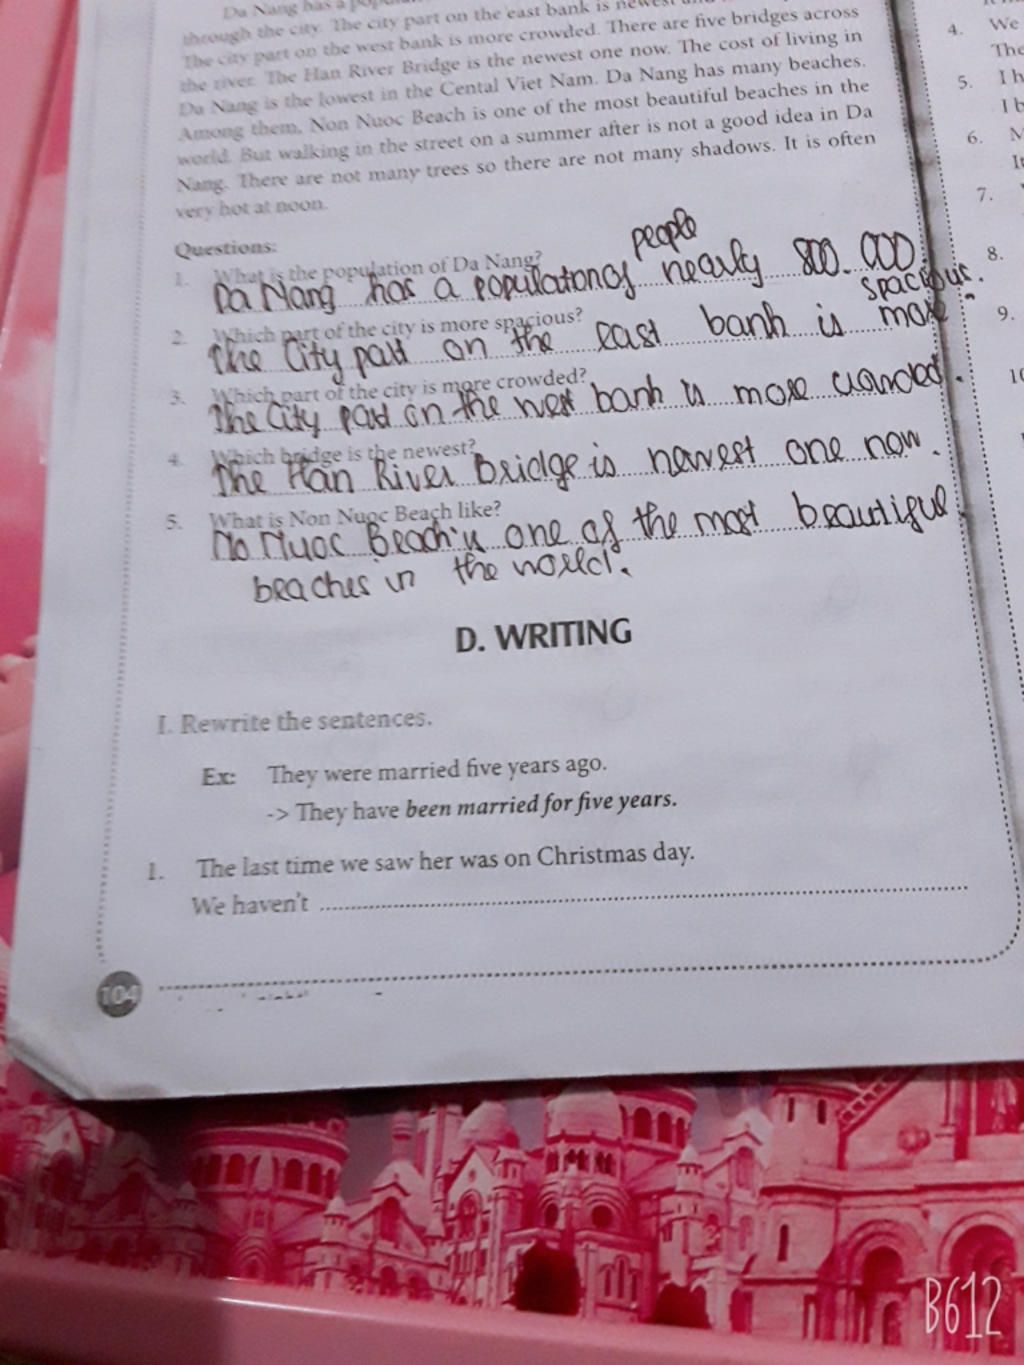 Da Nang has a
through the city. The city part on the east bank is newest
The city part on the west bank is more crowded. There are five bridges across
the river. The Han River Bridge is the newest one now. The cost of living in
Da Nang is the lowest in the Cental Viet Nam. Da Nang has many beaches.
Among them, Non Nuoc Beach is one of the most beautiful beaches in the
world. But walking in the street on a summer after is not a good idea in Da
Nang. There are not many trees so there are not many shadows. It is often
very hot at noon.
Questions:
1. What is the population of Da Nang?
people
Da Nang has a populationof nearly 800.000
2. Which part of the city is more spacious?
spacious.
The City part on the east bank is more
3. Which part of the city is more crowded?
The City part on the west bank is more crowded.
4. Which bridge is the newest?
The Han River Bridge is newest one now.
5. What is Non Nuoc Beach like?
No Nuoc Beach is one of the most beautiful
beaches in the world.
D. WRITING
I. Rewrite the sentences.
Ex: They were married five years ago.
-> They have been married for five years.
1. The last time we saw her was on Christmas day.
We haven't
104
4. We
The
5. I h
I b
6. M
It
7.
8.
9.
10
B612